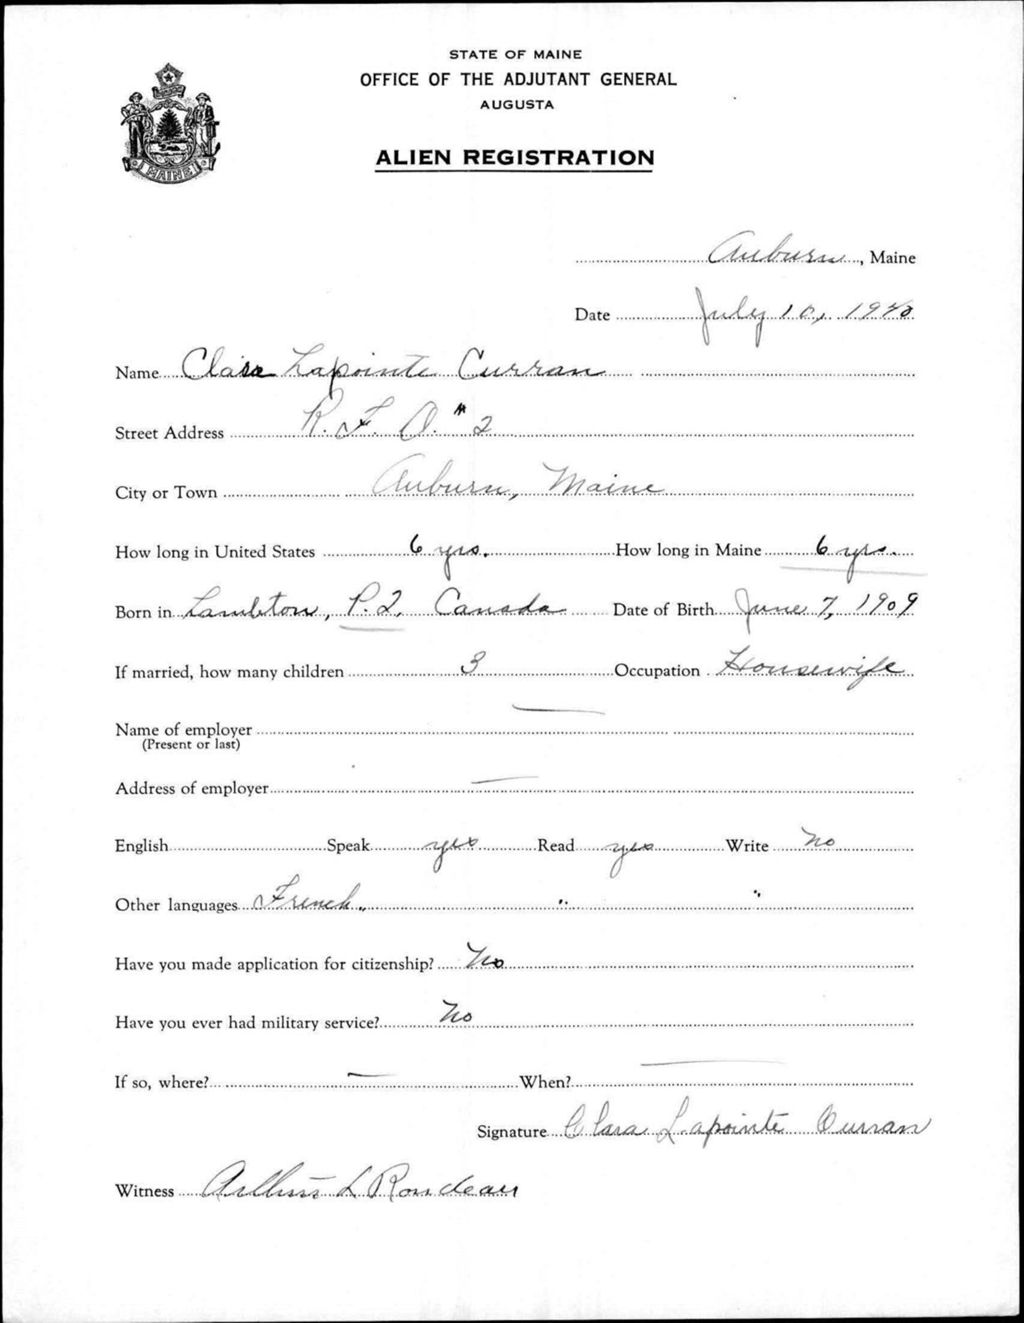 STATE OF MAINE
OFFICE OF THE ADJUTANT GENERAL
AUGUSTA
ALIEN REGISTRATION
MAINE
Auburn, Maine
Date July 10, 1940
Name Clara Lapointe Curran
Street Address R. F. D. #2
City or Town Auburn, Maine
How long in United States 6 yrs. How long in Maine 6 yrs.
Born in Lambton, P.Q. Canada Date of Birth June 7, 1909
If married, how many children 3 Occupation Housewife
Name of employer —
(Present or last)
Address of employer —
English Speak yes Read yes Write No
Other languages French " " "
Have you made application for citizenship? No
Have you ever had military service? No
If so, where? — When? —
Signature Clara Lapointe Curran
Witness Arthur L Rondeau